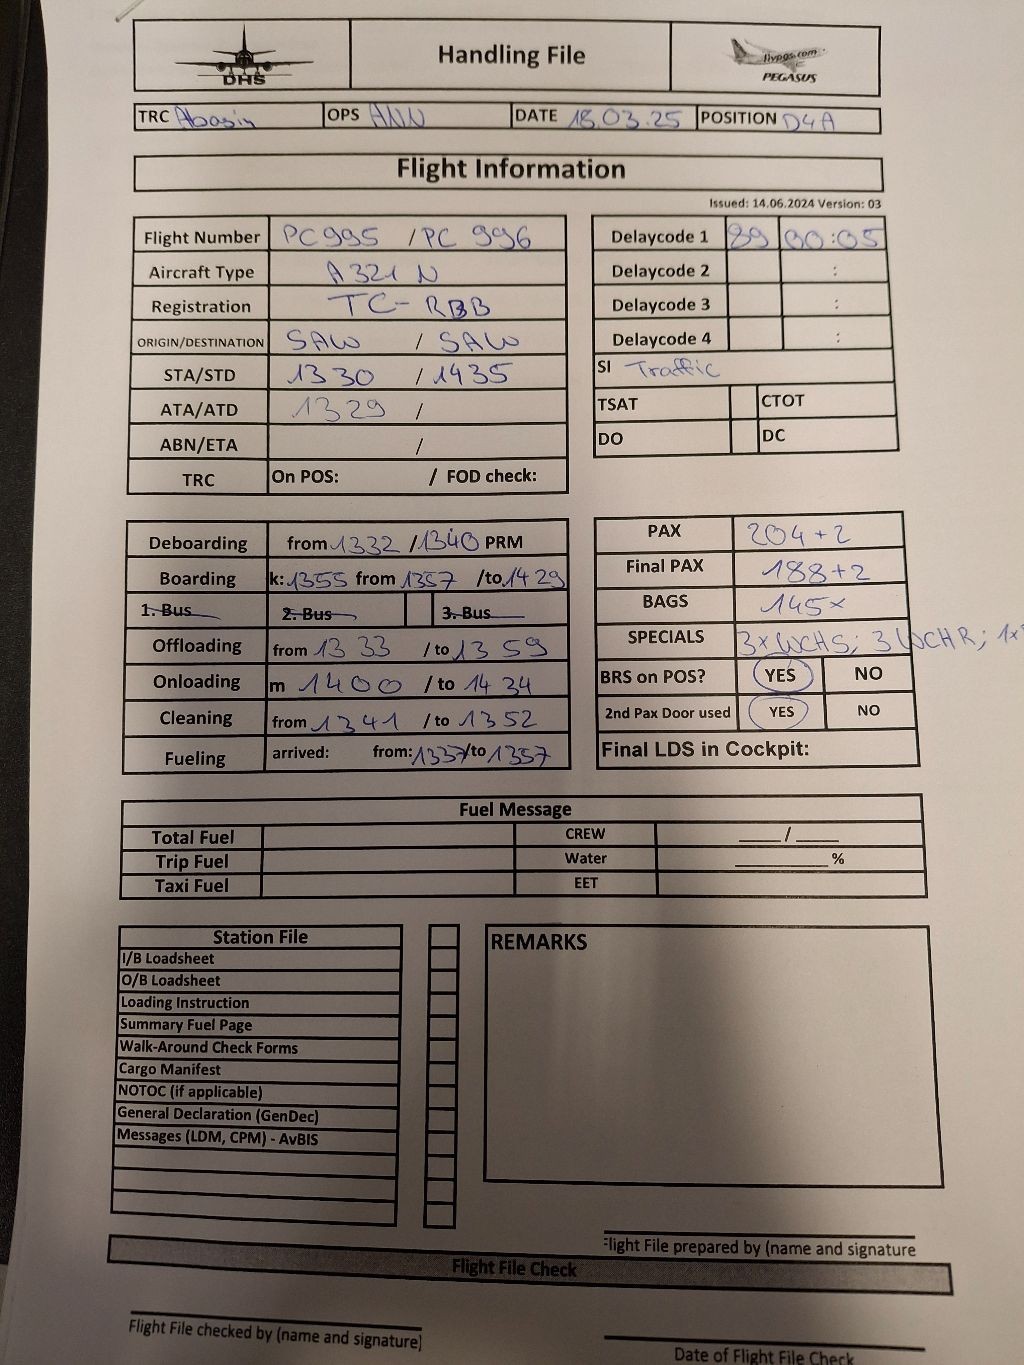 DHS
Handling File
flypgs.com
PEGASUS
TRC Abasin OPS ANN DATE 18.03.25 POSITION D4A
Flight Information
Issued: 14.06.2024 Version: 03
Flight Number PC995 / PC 996
Aircraft Type A321 N
Registration TC-RBB
ORIGIN/DESTINATION SAW / SAW
STA/STD 1330 / 1435
ATA/ATD 1329 /
ABN/ETA /
TRC On POS: / FOD check:
Delaycode 1 89 00:05
Delaycode 2 :
Delaycode 3 :
Delaycode 4 :
SI Traffic
TSAT CTOT
DO DC
Deboarding from 1332 / 1340 PRM
Boarding k: 1355 from 1357 /to 1429
1. Bus 2. Bus 3. Bus
Offloading from 1333 / to 1359
Onloading m 1400 / to 1434
Cleaning from 1341 / to 1352
Fueling arrived: from: 1337/to 1357
PAX 204+2
Final PAX 188+2
BAGS 145x
SPECIALS 3x WCHS; 3 WCHR; 1x
BRS on POS? YES NO
2nd Pax Door used YES NO
Final LDS in Cockpit:
Fuel Message
Total Fuel CREW ____/____
Trip Fuel Water _________%
Taxi Fuel EET
Station File
I/B Loadsheet
O/B Loadsheet
Loading Instruction
Summary Fuel Page
Walk-Around Check Forms
Cargo Manifest
NOTOC (if applicable)
General Declaration (GenDec)
Messages (LDM, CPM) - AvBIS
REMARKS
Flight File prepared by (name and signature
Flight File Check
Flight File checked by (name and signature)
Date of Flight File Check